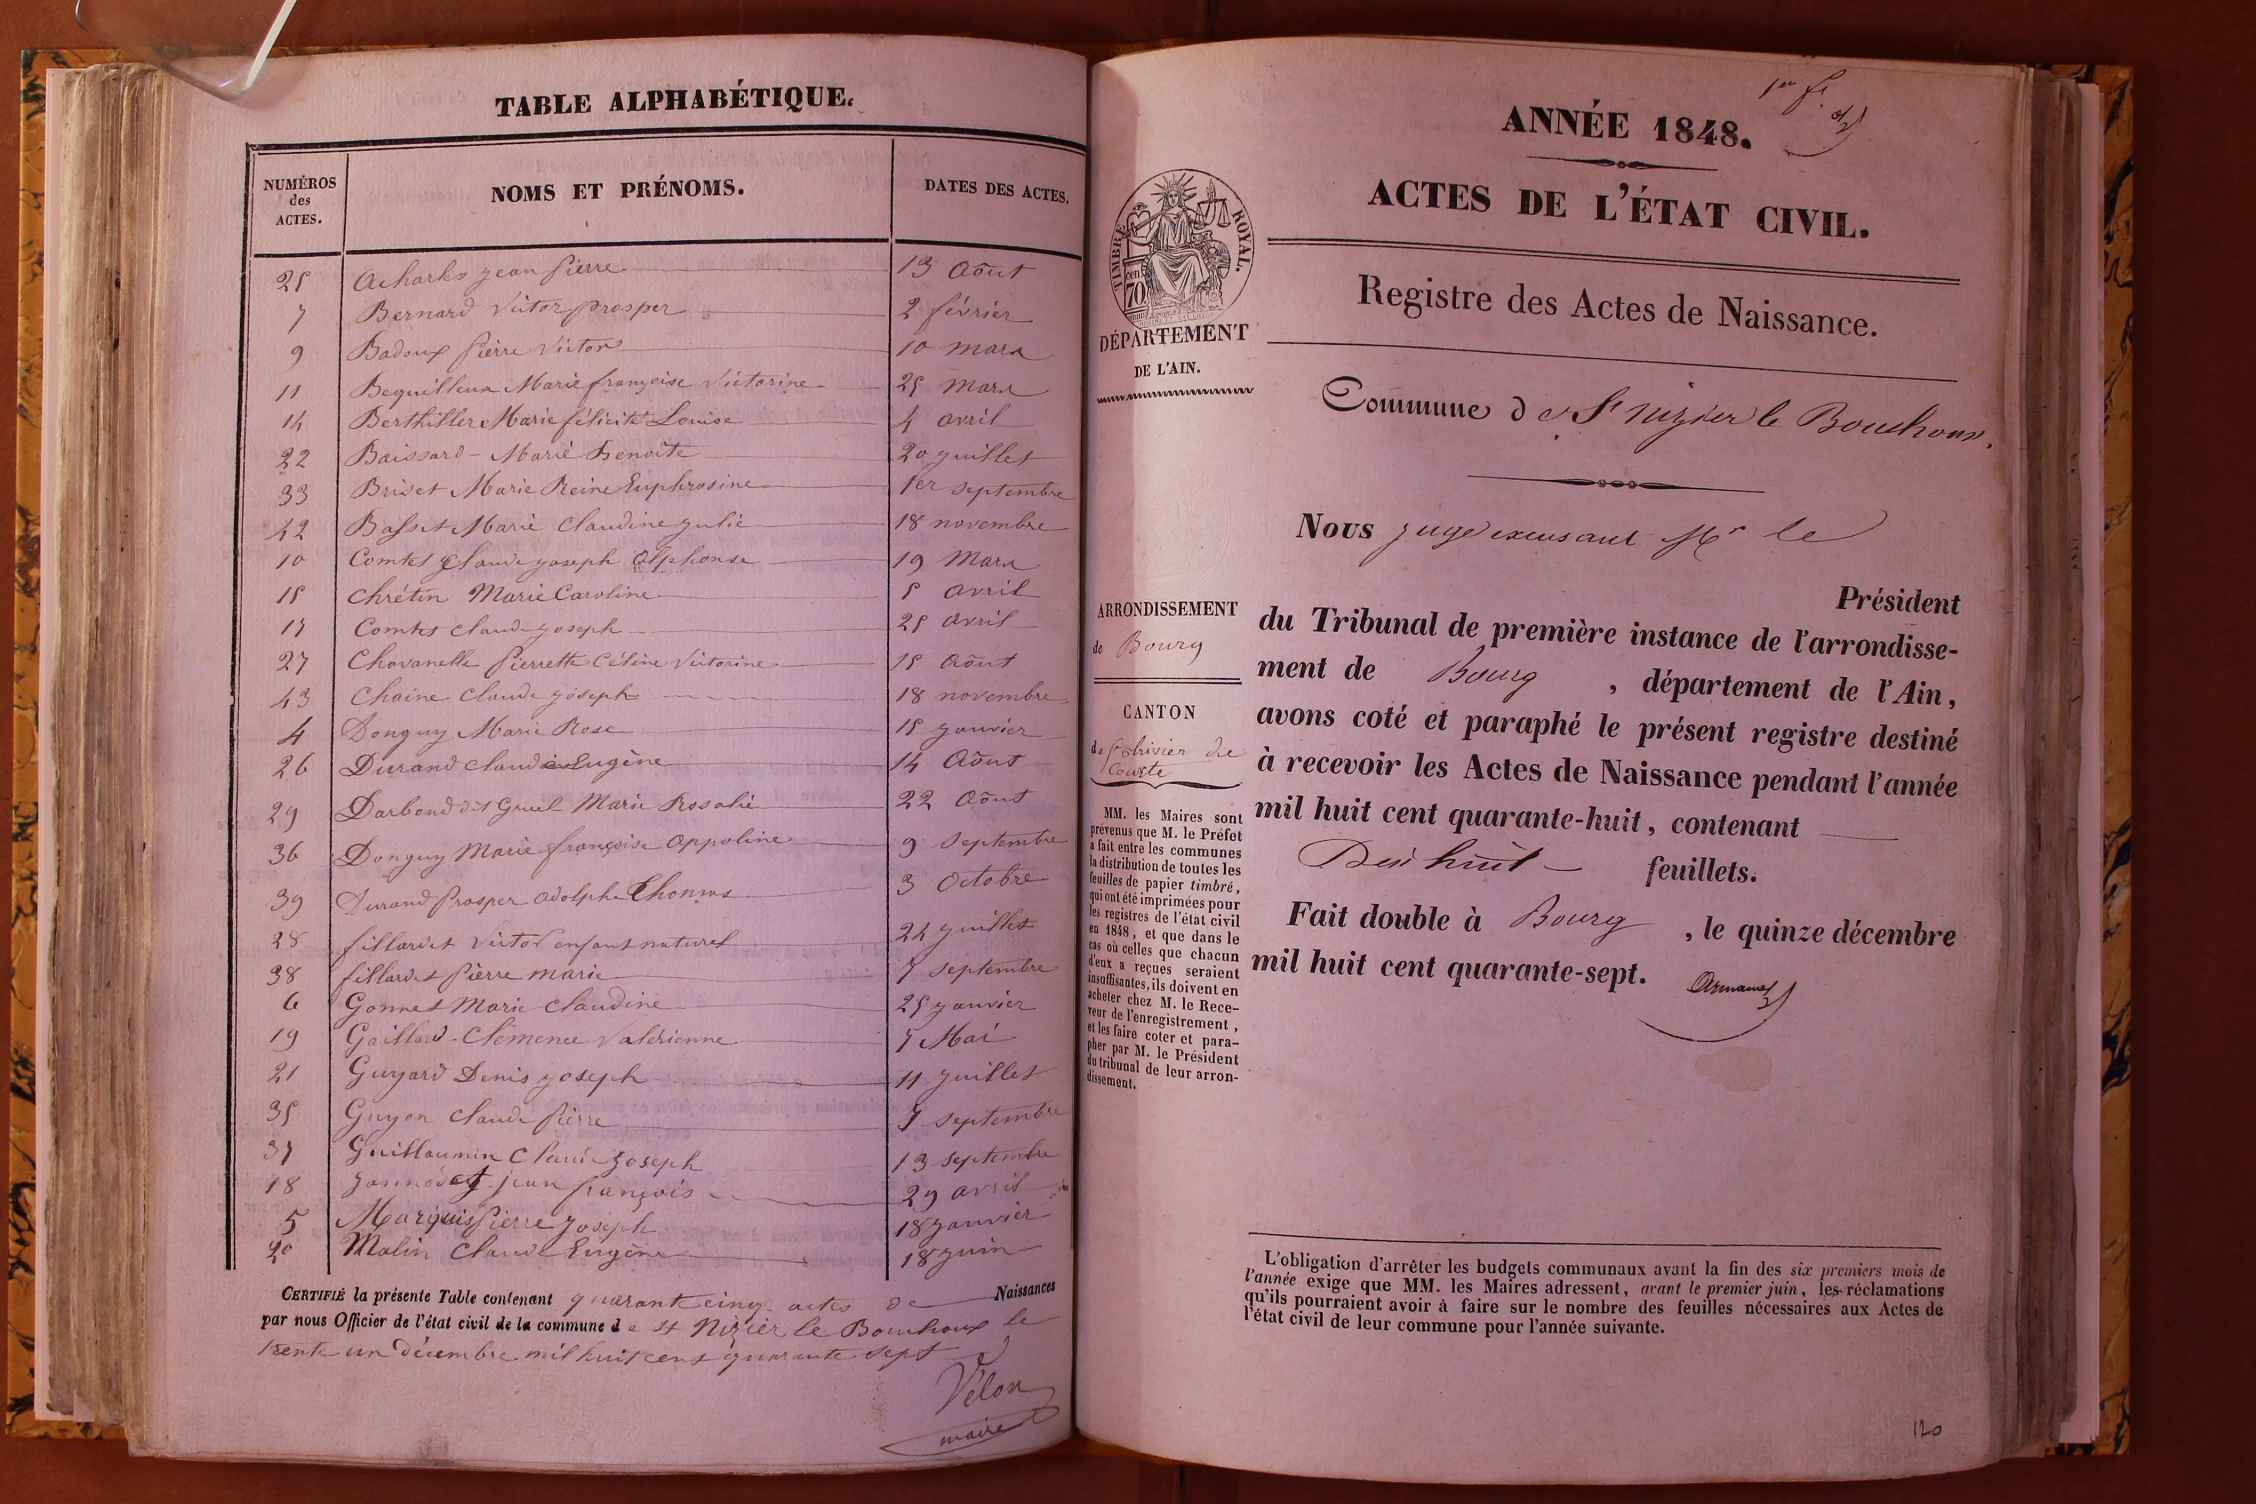 TABLE ALPHABÉTIQUE.
NUMÉROS des ACTES. NOMS ET PRÉNOMS. DATES DES ACTES.
25 Acharles jean pierre 13 Aôut
7 Bernard Victor prosper 2 février
9 Badoux pierre Victor 10 mars
11 Bequilleux Marie françoise Victorine 25 mars
14 Berthillere Marie félicité Louise 4 avril
22 Baissard - Marie Benoîte 20 juillet
33 Briset Marie Reine Euphrosine 1er septembre
42 Basset Marie Claudine julie 18 novembre
10 Comtet Claude joseph alphonse 19 Mars
15 chrétin Marie Caroline 5 avril
17 Comtes claude joseph 25 avril
27 Chavanelle pierrette Céline Victorine 15 Aôut
43 Chaine claude joseph 18 novembre
4 Donguy Marie Rose 15 janvier
26 Durand claude Eugène 14 Aôut
29 Darbond dit Gruel Marie Rosalie 22 Aôut
36 Donguy Marie françoise appoline 9 septembre
39 Durand prosper adolphe Thomas 3 Octobre
28 fillardet Victor enfant naturel 24 juillet
38 fillardet pierre marie 7 septembre
6 Gonnet Marie claudine 25 janvier
19 Gaillard - Clémence Valérienne 7 Mai
21 Guyard Denis joseph 11 juillet
35 Guyon claude pierre 7 septembre
37 Guillaumin Claude joseph 13 septembre
18 jean françois 29 avril
5 Marquis pierre joseph 18 janvier
20 Malin claude Eugène 18 juin
CERTIFIÉ la présente Table contenant quarante cinq actes de Naissances
par nous Officier de l'état civil de la commune de St Nizier le Bouchoux le
trente un décembre mil huit cent quarante sept
Vélon
maire
1er f.
ANNÉE 1848.
ACTES DE L'ÉTAT CIVIL.
TIMBRE ROYAL.
cen 70
Registre des Actes de Naissance.
DÉPARTEMENT
DE L'AIN.
Commune de St nizier le Bouchoux.
Nous juge excusant Mr le
Président
du Tribunal de première instance de l'arrondisse-
ment de Bourg , département de l'Ain,
avons coté et paraphé le présent registre destiné
à recevoir les Actes de Naissance pendant l'année
mil huit cent quarante-huit, contenant
Dix huit feuillets.
Fait double à Bourg , le quinze décembre
mil huit cent quarante-sept.
ARRONDISSEMENT
de Bourg
CANTON
de St trivier de
Courte
MM. les Maires sont
prévenus que M. le Préfet
a fait entre les communes
la distribution de toutes les
feuilles de papier timbré,
qui ont été imprimées pour
les registres de l'état civil
en 1848, et que dans le
cas où celles que chacun
d'eux a reçues seraient
insuffisantes, ils doivent en
acheter chez M. le Rece-
veur de l'enregistrement,
et les faire coter et para-
pher par M. le Président
du tribunal de leur arron-
dissement.
L'obligation d'arrêter les budgets communaux avant la fin des six premiers mois de
l'année exige que MM. les Maires adressent, avant le premier juin, les réclamations
qu'ils pourraient avoir à faire sur le nombre des feuilles nécessaires aux Actes de
l'état civil de leur commune pour l'année suivante.
120